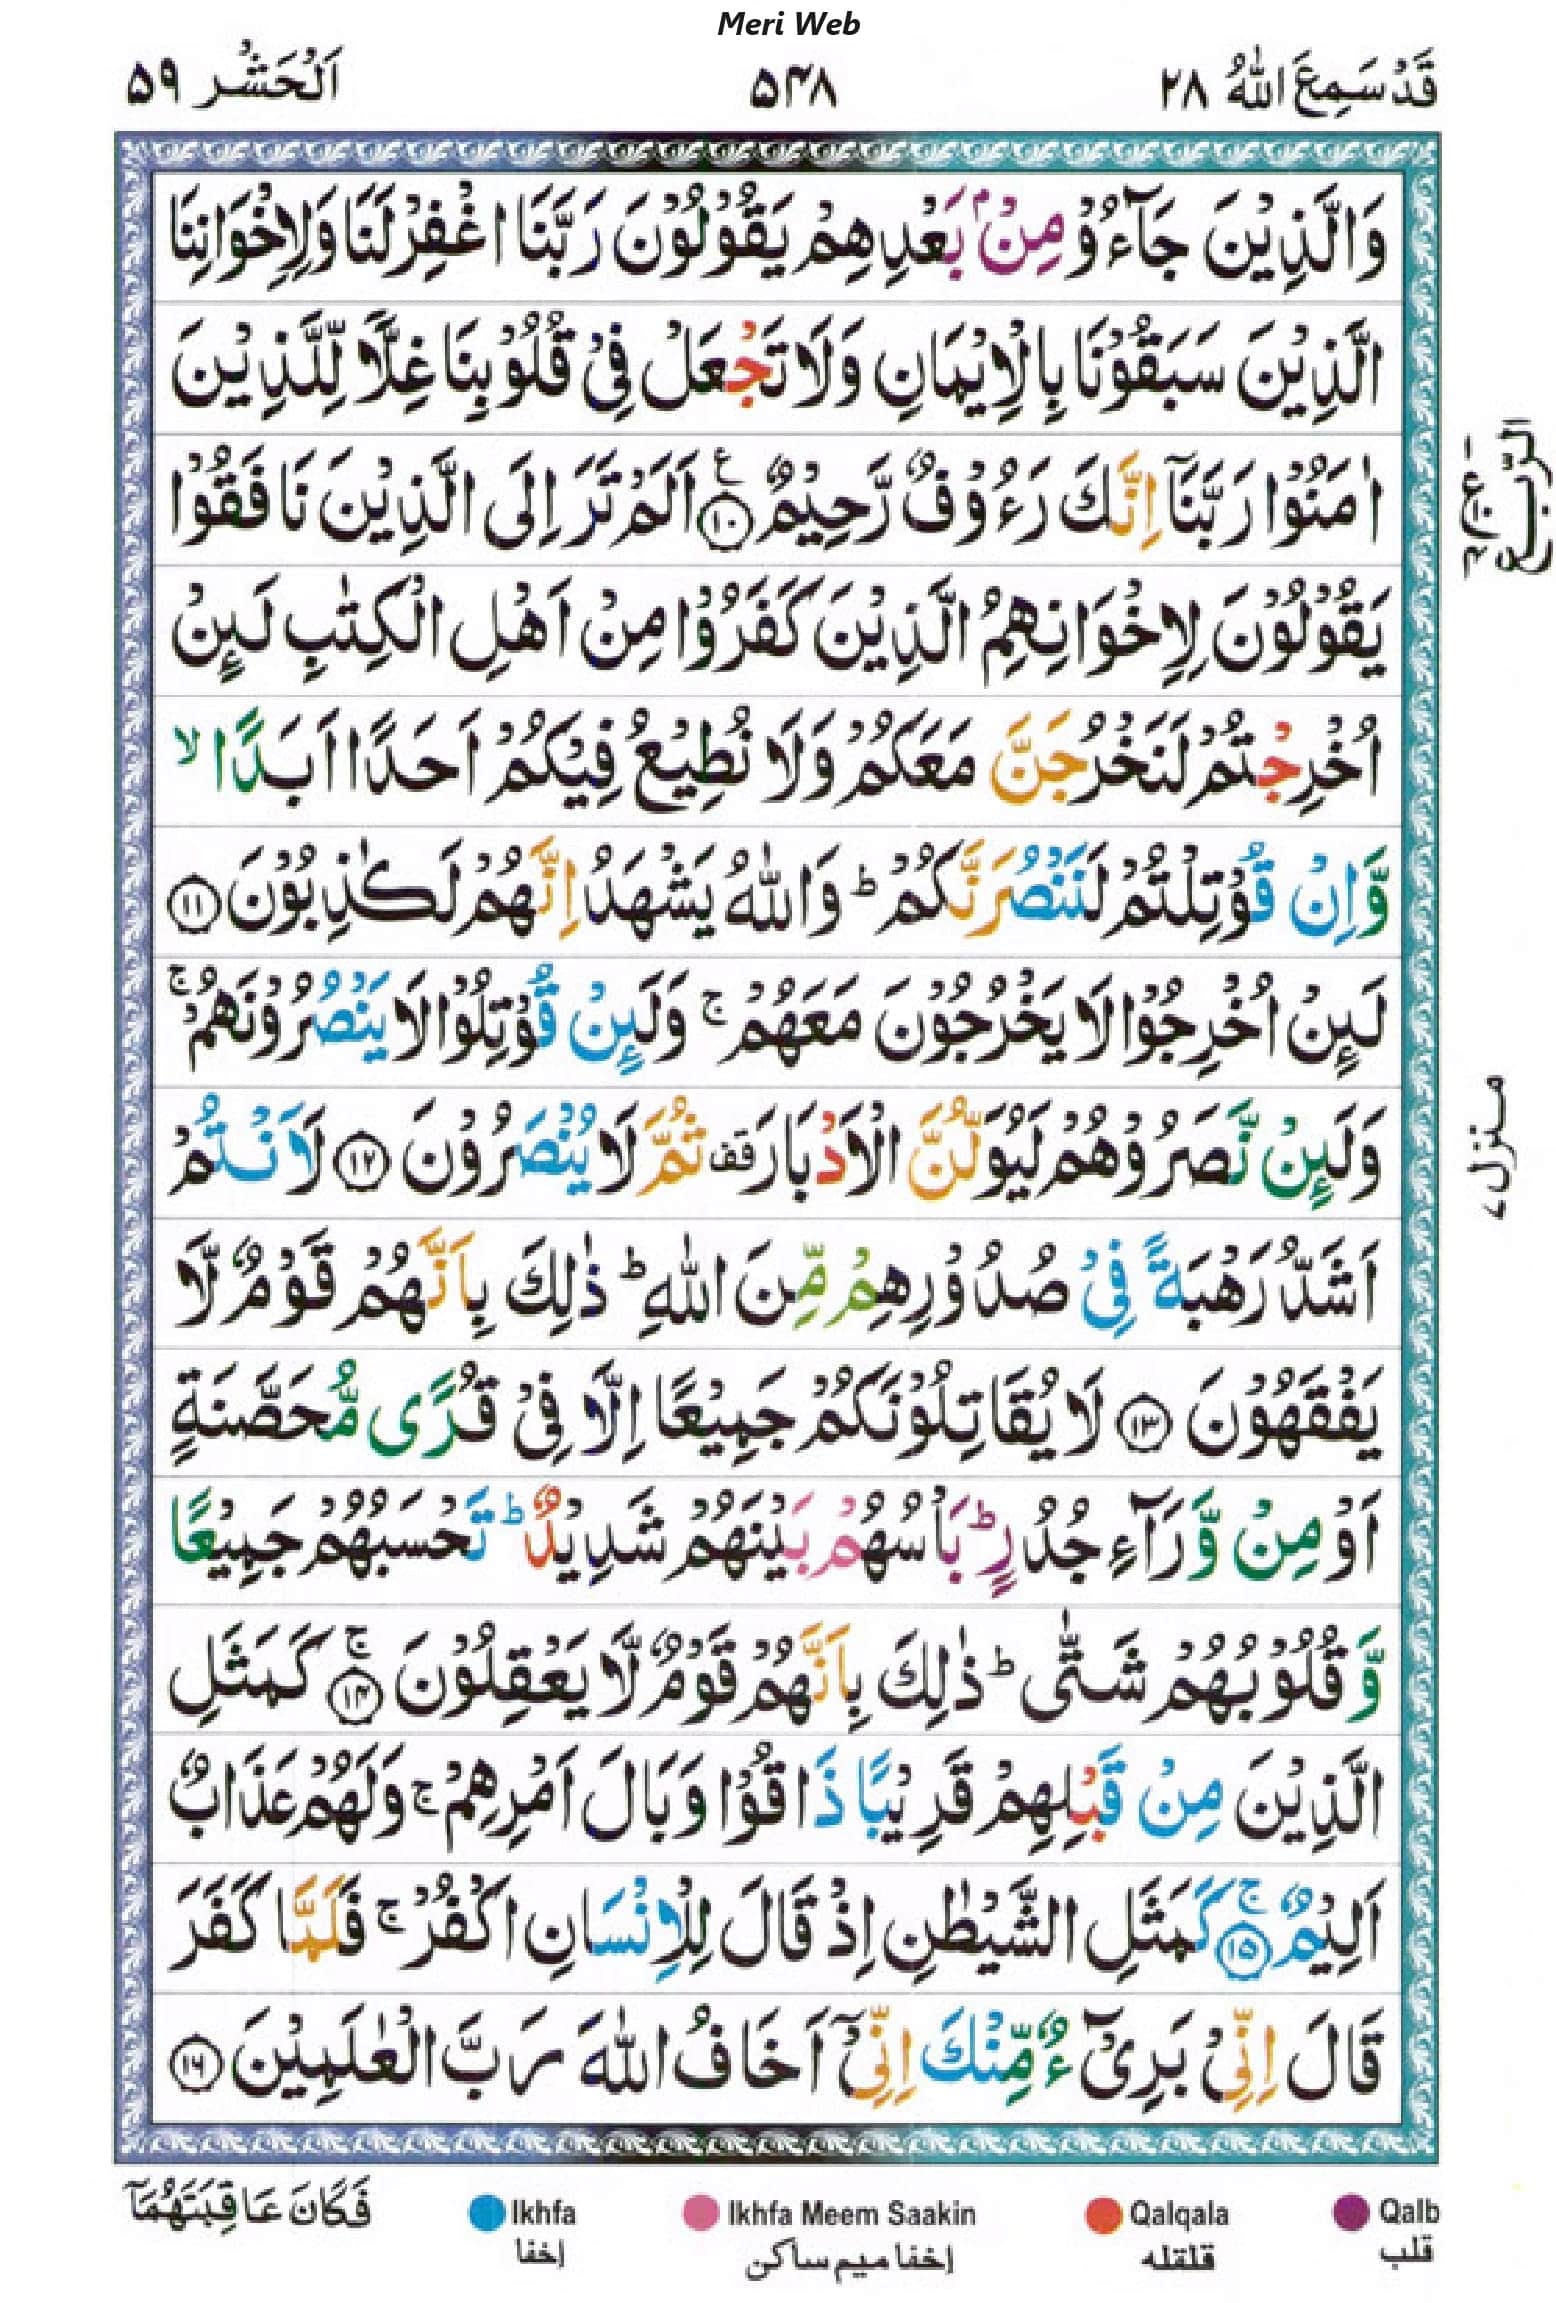 Meri Web
قَدْ سَمِعَ اللّٰهُ ۲۸
۵۴۸
اَلْحَشْر ۵۹
وَالَّذِيْنَ جَآءُوْ مِنْۢ بَعْدِهِمْ يَقُوْلُوْنَ رَبَّنَا اغْفِرْ لَنَا وَلِاِخْوَانِنَا
الَّذِيْنَ سَبَقُوْنَا بِالْاِيْمَانِ وَلَا تَجْعَلْ فِيْ قُلُوْبِنَا غِلًّا لِّلَّذِيْنَ
اٰمَنُوْا رَبَّنَآ اِنَّكَ رَءُوْفٌ رَّحِيْمٌ ۧ‏﴿۱۰﴾ اَلَمْ تَرَ اِلَى الَّذِيْنَ نَافَقُوْا
يَقُوْلُوْنَ لِاِخْوَانِهِمُ الَّذِيْنَ كَفَرُوْا مِنْ اَهْلِ الْكِتٰبِ لَىِٕنْ
اُخْرِجْتُمْ لَنَخْرُجَنَّ مَعَكُمْ وَلَا نُطِيْعُ فِيْكُمْ اَحَدًا اَبَدًا ۙ
وَّاِنْ قُوْتِلْتُمْ لَنَنْصُرَنَّكُمْ ؕ وَاللّٰهُ يَشْهَدُ اِنَّهُمْ لَكٰذِبُوْنَ ﴿۱۱﴾
لَىِٕنْ اُخْرِجُوْا لَا يَخْرُجُوْنَ مَعَهُمْ ۚ وَلَىِٕنْ قُوْتِلُوْا لَا يَنْصُرُوْنَهُمْ ۚ
وَلَىِٕنْ نَّصَرُوْهُمْ لَيُوَلُّنَّ الْاَدْبَارَ قف ثُمَّ لَا يُنْصَرُوْنَ ﴿۱۲﴾ لَاَنْتُمْ
اَشَدُّ رَهْبَةً فِيْ صُدُوْرِهِمْ مِّنَ اللّٰهِ ؕ ذٰلِكَ بِاَنَّهُمْ قَوْمٌ لَّا
يَفْقَهُوْنَ ﴿۱۳﴾ لَا يُقَاتِلُوْنَكُمْ جَمِيْعًا اِلَّا فِيْ قُرًى مُّحَصَّنَةٍ
اَوْ مِنْ وَّرَآءِ جُدُرٍ ؕ بَاْسُهُمْ بَيْنَهُمْ شَدِيْدٌ ؕ تَحْسَبُهُمْ جَمِيْعًا
وَّقُلُوْبُهُمْ شَتّٰى ؕ ذٰلِكَ بِاَنَّهُمْ قَوْمٌ لَّا يَعْقِلُوْنَ ۚ﴿۱۴﴾ كَمَثَلِ
الَّذِيْنَ مِنْ قَبْلِهِمْ قَرِيْبًا ذَاقُوْا وَبَالَ اَمْرِهِمْ ۚ وَلَهُمْ عَذَابٌ
اَلِيْمٌ ۚ﴿۱۵﴾ كَمَثَلِ الشَّيْطٰنِ اِذْ قَالَ لِلْاِنْسَانِ اكْفُرْ ۚ فَلَمَّا كَفَرَ
قَالَ اِنِّيْ بَرِيْٓءٌ مِّنْكَ اِنِّيْٓ اَخَافُ اللّٰهَ رَبَّ الْعٰلَمِيْنَ ﴿۱۶﴾
الربع
منزل ۷
فَكَانَ عَاقِبَتَهُمَآ
Ikhfa
إخفا
Ikhfa Meem Saakin
إخفا ميم ساكن
Qalqala
قلقله
Qalb
قلب